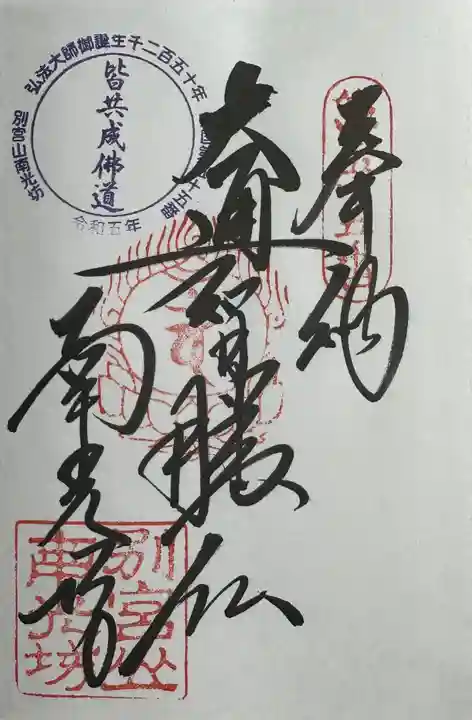 奉納
大通智勝仏
南光坊
弘法大師御誕生千二百五十年
皆共成佛道
別宮山南光坊
令和五年
別宮山
南光坊